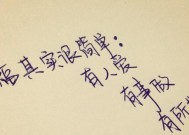 福其实很简单：
有人爱
有事做
有所